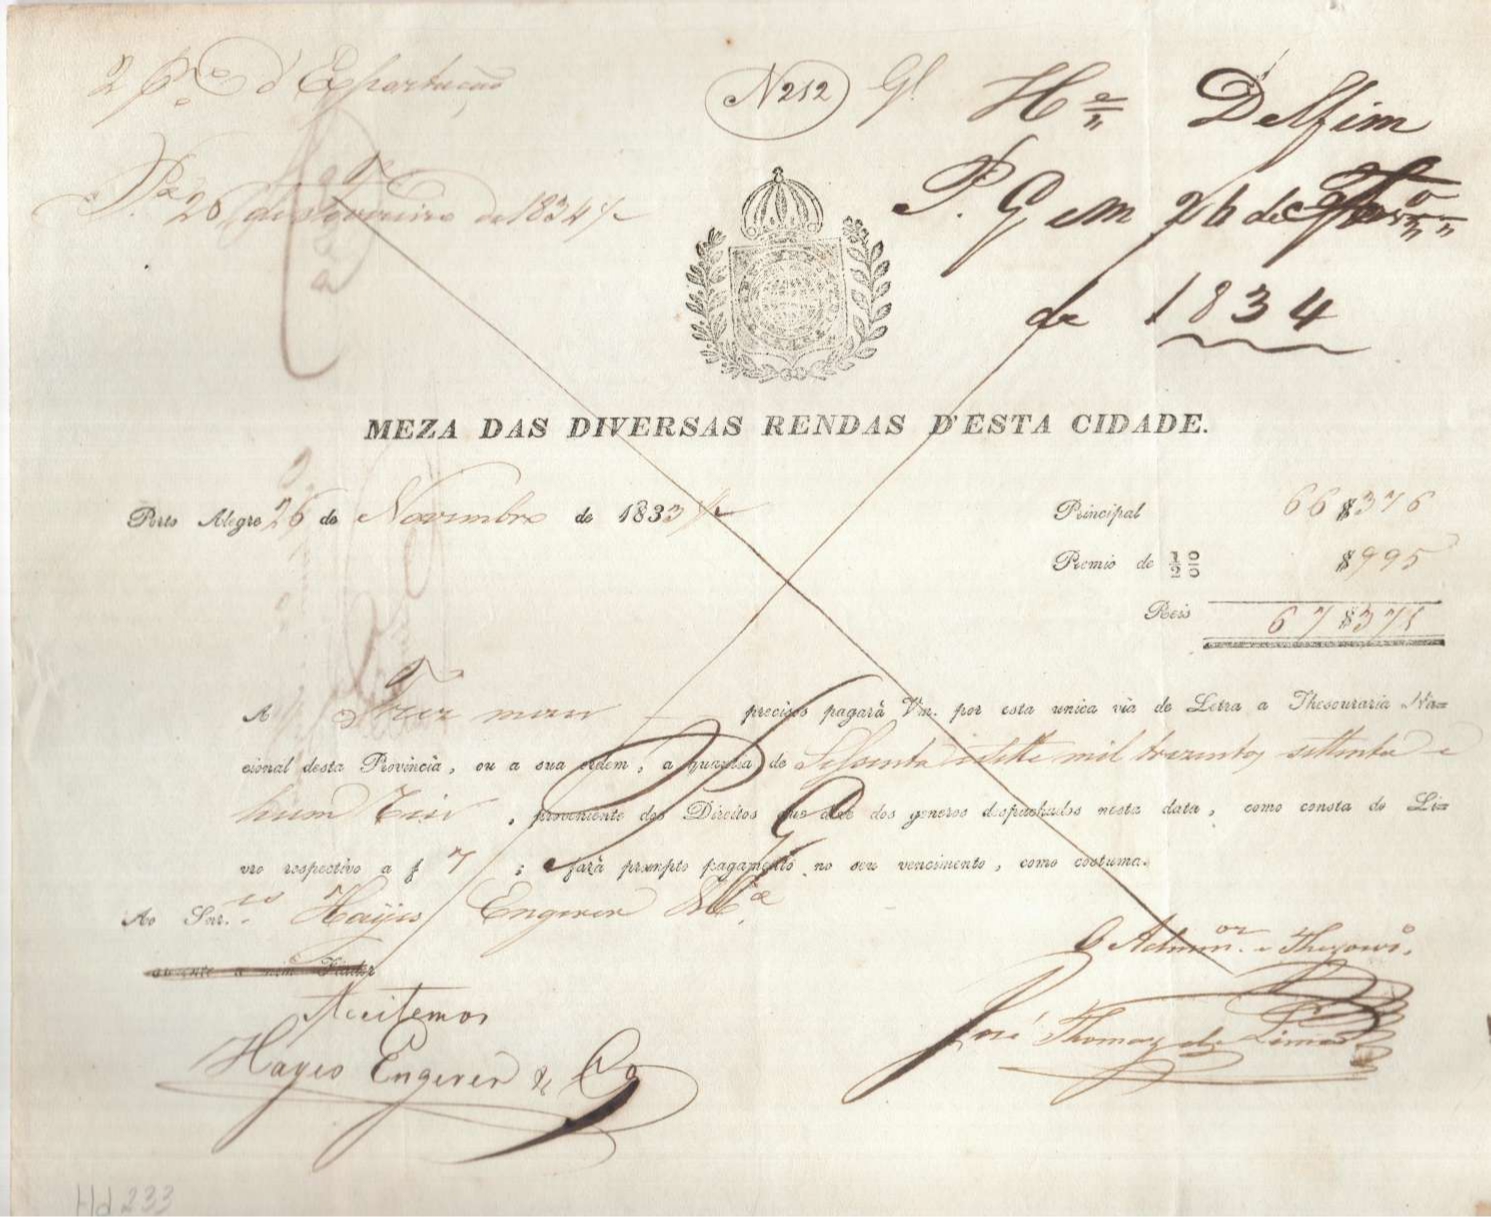 2 p.º d'Exportação
N 212 Gl
H.ª Delfim
P.ª 26 de Fevereiro de 1834
P. G em 26 de Fever.º
de 1834
MEZA DAS DIVERSAS RENDAS D'ESTA CIDADE.
Porto Alegre 26 de Novembro de 1833
Principal 66$376
Premio de ½ 0/0 $995
Reis 67$371
A Trez mezes precisos pagará Vm. por esta unica via de Letra a Thesouraria Na=
cional desta Provincia, ou a sua ordem, a quantia de Sessenta e sette mil trezentos settenta e
hum Reis, proveniente dos Direitos que deo dos generos despachados nesta data, como consta do Li=
vro respectivo a f 7; e fará prompto pagamento no seu vencimento, como costuma.
Ao Snr.es Hayes Engerer & C.ª
O Admin.or e Thezour.º
Aceitemos
José Thomaz de Lima
Hayes Engerer & Co
Hd 233